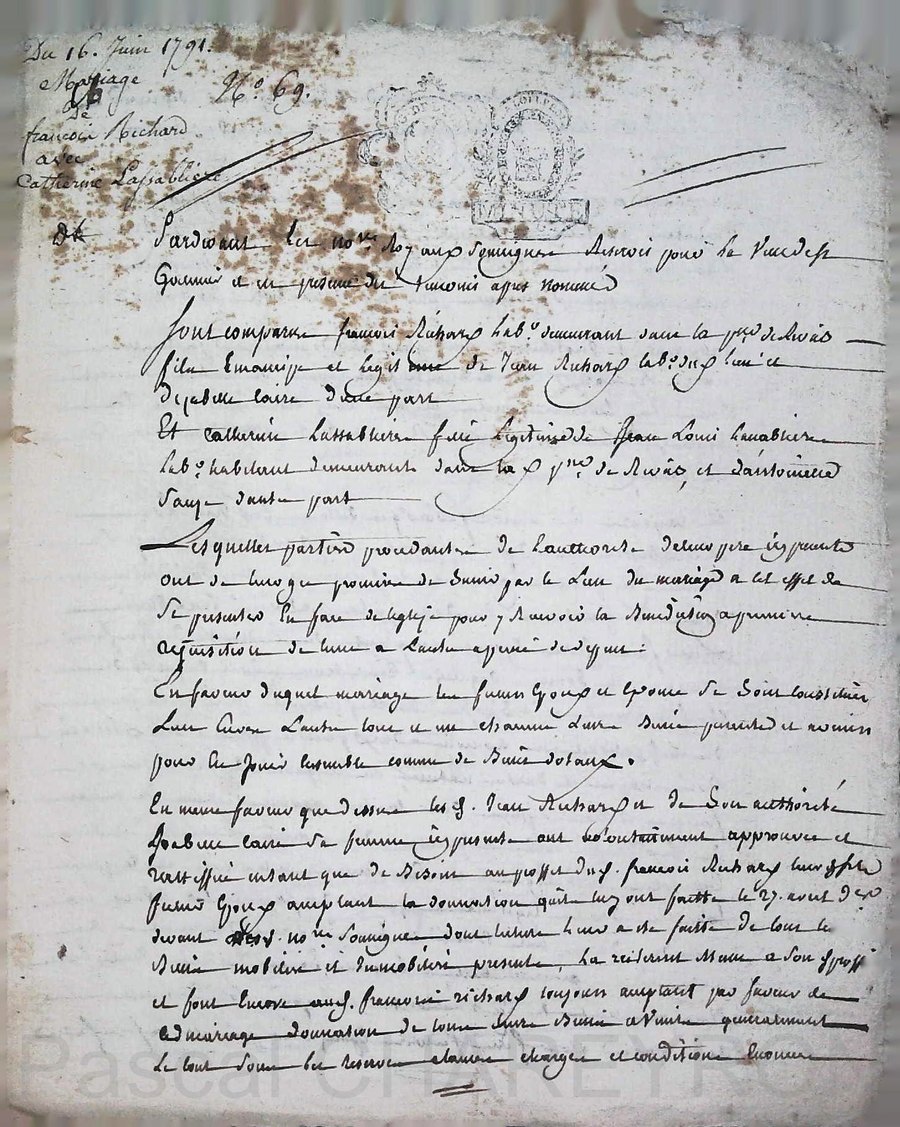 Du 16. Juin 1791.
Mariage
de
françois Richard
avec
Catherine Lassabliere
No. 69.
MINUTE
Pardevant les nores Royaux soussignes Reservés pour la Ville de St
Galmier et en presence des temoins apres nommés
Sont comparus françois Richard labr. demeurant dans la psse de
fils emancipé et legitime de Jean Richard labr. dud. lieu et
d'isabelle Claire d'une part
Et Catherine Lassabliere fille legitime de Jean Louis Lassabliere
labr. habitant demeurants dans la d. psse de et d'antoinette
d'autre part
Lesquelles parties procedantes de l'authorité de leurs peres icy presents
ont de leur gré promis de s'unir par le Lien du mariage a cet effet de
se presenter En face de leglise pour y Recevoir la Benediction a premiere
requisition de l'une a l'autre a peine de depens:
En faveur duquel mariage les futurs Epoux et Epouse se sont Constitués
L'un Envers L'autre tous et un chacuns Leurs Biens presents et avenir
pour En Jouir Ensemble comme de Biens dotaux.
En meme faveur que dessus led. Jean Richard et de Son authorité
Isabelle Claire sa femme icy presente ont approuvé et
rattiffié entant que de Besoin au proffit dud. françois Richard leur fils
futur Epoux acceptant la donnation qu'ils luy ont faitte le 27. avril dr.
devant nore Soussigné dont lecture leur a été faitte de tous leurs
Biens mobiliers et Immobiliers presents, La reiterent meme a Son proffit
et font Encore aud. françois richard toujours acceptant par faveur de
ced. mariage donnation de tous leurs Biens a Venir generalement
Le tout Sous les reserves clauses charges et conditions Enoncées
Pascal CHAREYRON